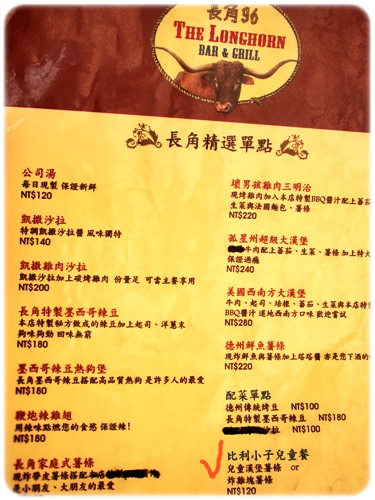 長角96
THE LONGHORN
BAR & GRILL
長角精選單點
公司湯
每日現製 保證新鮮
NT$120
凱撒沙拉
特調凱撒沙拉醬 風味獨特
NT$140
凱撒雞肉沙拉
凱撒沙拉加上碳烤雞肉 份量足 可當主餐享用
NT$200
長角特製墨西哥辣豆
本店特製秘方做成的辣豆加上起司、洋蔥末
夠味夠勁 回味無窮
NT$180
墨西哥辣豆熱狗堡
長角墨西哥辣豆搭配高品質熱狗 是許多人的最愛
NT$180
鞭炮辣雞翅
用辣味點燃您的食慾 保證辣!
NT$180
長角家庭式薯條
現炸帶皮薯條搭配本店
是小朋友、大朋友的最愛
壞男孩雞肉三明治
現烤雞肉加入本店特製BBQ醬汁配上蕃茄
生菜與法國麵包、薯條
NT$220
孤星州超級大漢堡
牛肉配上蕃茄、生菜、薯條 加上特大
保證過癮
NT$240
美國西南方大漢堡
牛肉、起司、培根、蕃茄、生菜與本店特
BBQ醬汁 道地西南方口味 歡迎嘗試
NT$280
德州鮮魚薯條
現炸鮮魚與薯條加上塔塔醬 亦是您下酒的
NT$220
配菜單點
德州傳統烤豆 NT$100
長角特製墨西哥辣豆 NT$180
沙拉 NT$100
比利小子兒童餐
兒童漢堡薯條 or
炸雞塊薯條
NT$200